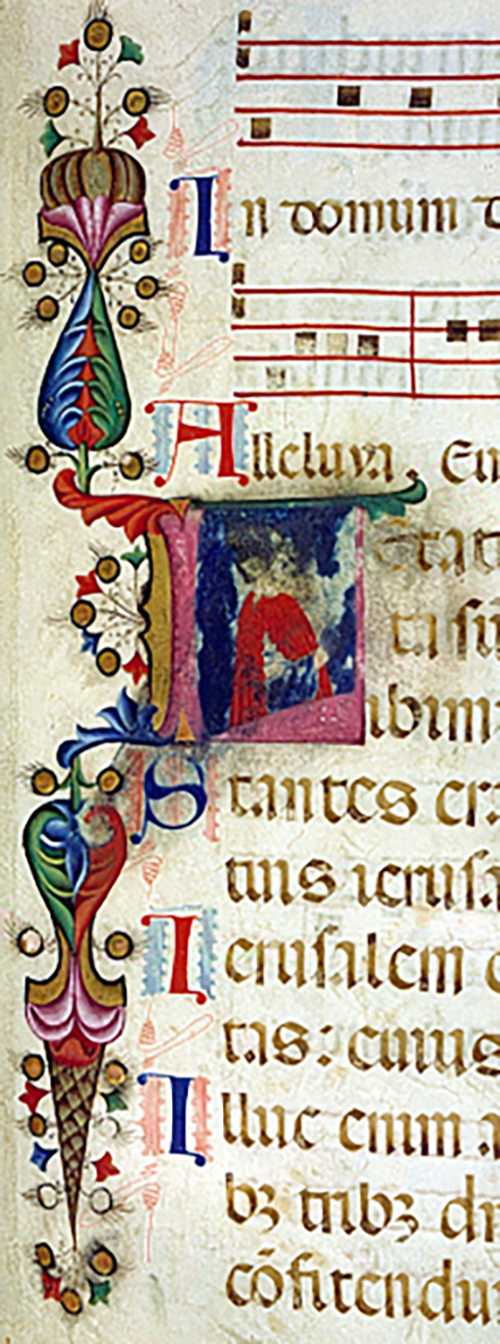 In domum d
Alleluya. Eu
L etat
ti su
ibimu
Stantes er
tuis ierusa
Ierusalem e
tas: cuius
Illuc enim a
bꝫ tribꝫ do
cōfitendu